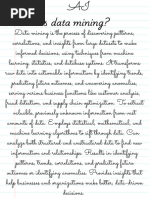 AI
is data mining?
Data mining is the process of discovering patterns,
correlations, and insights from large datasets to make
informed decisions, using techniques from machine
learning, statistics, and database systems. It transforms
raw data into actionable information by identifying trends,
predicting future outcomes, and uncovering anomalies,
serving various business functions like customer analysis,
fraud detection, and supply chain optimization. To extract
valuable, previously unknown information from vast
amounts of data. Employs statistical, mathematical, and
machine learning algorithms to sift through data. Can
analyze both structured and unstructured data to find new
information and relationships. Results in identifying
patterns, trends, correlations, and predicting future
outcomes or identifying anomalies. Provides insights that
help businesses and organizations make better, data-driven
decisions.